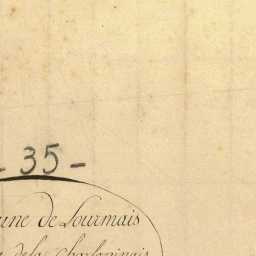 - 35 -
une de Lourmais
de la Chapelainais